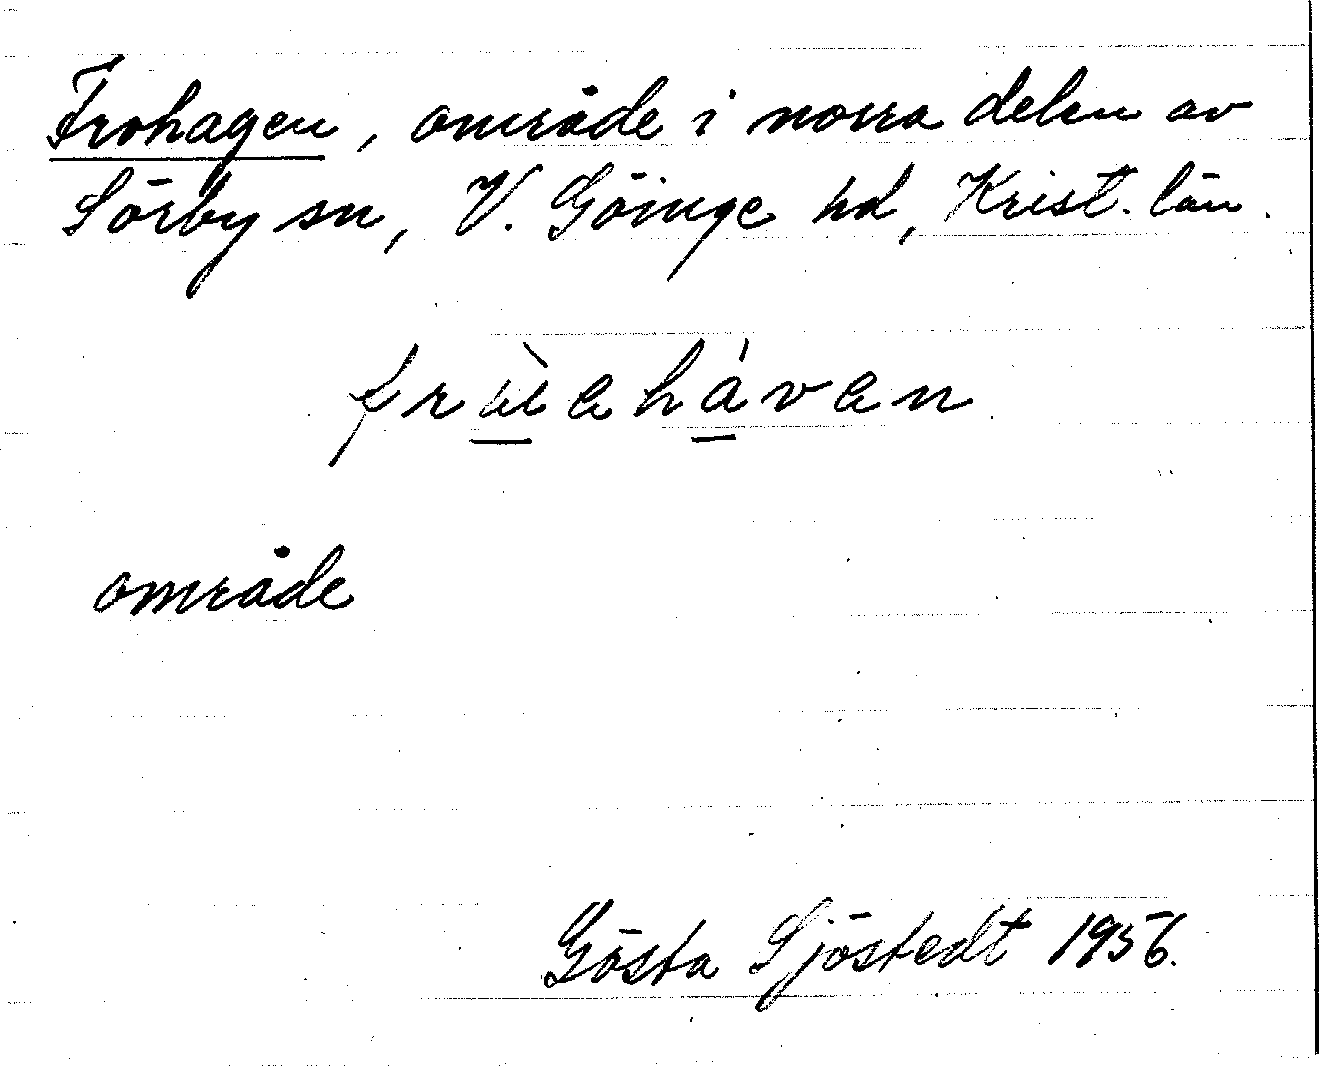 Frohagen, område i norra delen av
Sörby sn, V. Göinge hd, Krist. län.
område
Gösta Sjöstedt 1956.